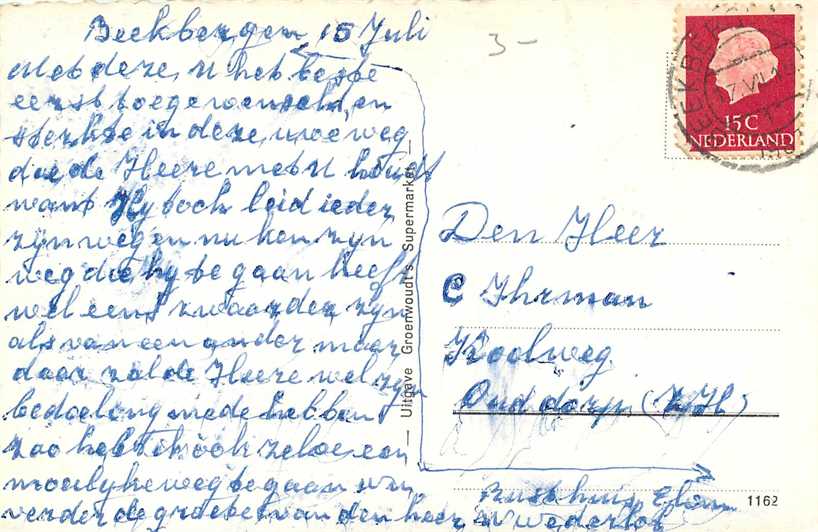 Beekbergen 15 Juli
Met deze, U het beste
eerst toegewenscht, en
sterkte in deze, uwe weg
die de Heere met U houdt
want Hy toch leid ieder
zyn wegen nu kan zyn
weg die hy te gaan heeft
wel eens zwaarder zyn
als van een ander maar
daar zal de Heere wel zyn
bedoeling mede hebben
zoo heb ik ook zelve een
moeilyke weg te gaan
verder de groeten van den heer W Wederhof
Rusthuis Elim
3-
EKBE
17.VII.
15C
NEDERLAND
Den Heer
C Ihrman
Koolweg
Ouddorp (Z.H)
Uitgave Groenwoudt's Supermarket
1162